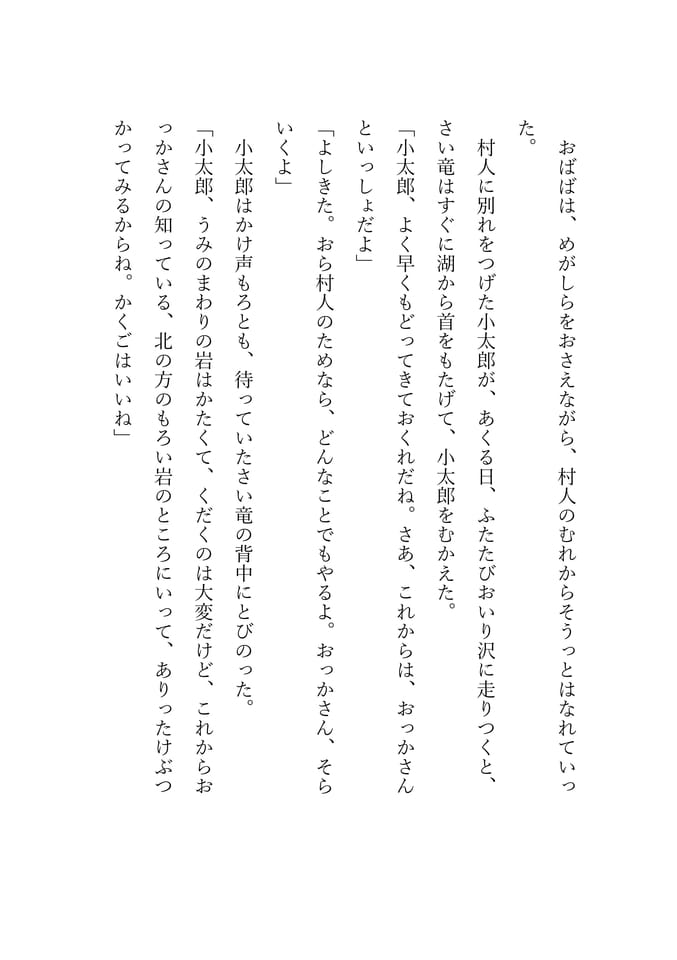 おばばは、めがしらをおさえながら、村人のむれからそうっとはなれていっ
た。
村人に別れをつげた小太郎が、あくる日、ふたたびおいり沢に走りつくと、
さい竜はすぐに湖から首をもたげて、小太郎をむかえた。
「小太郎、よく早くもどってきておくれだね。さあ、これからは、おっかさん
といっしょだよ」
「よしきた。おら村人のためなら、どんなことでもやるよ。おっかさん、そら
いくよ」
小太郎はかけ声もろとも、待っていたさい竜の背中にとびのった。
「小太郎、うみのまわりの岩はかたくて、くだくのは大変だけど、これからお
っかさんの知っている、北の方のもろい岩のところにいって、ありったけぶつ
かってみるからね。かくごはいいね」